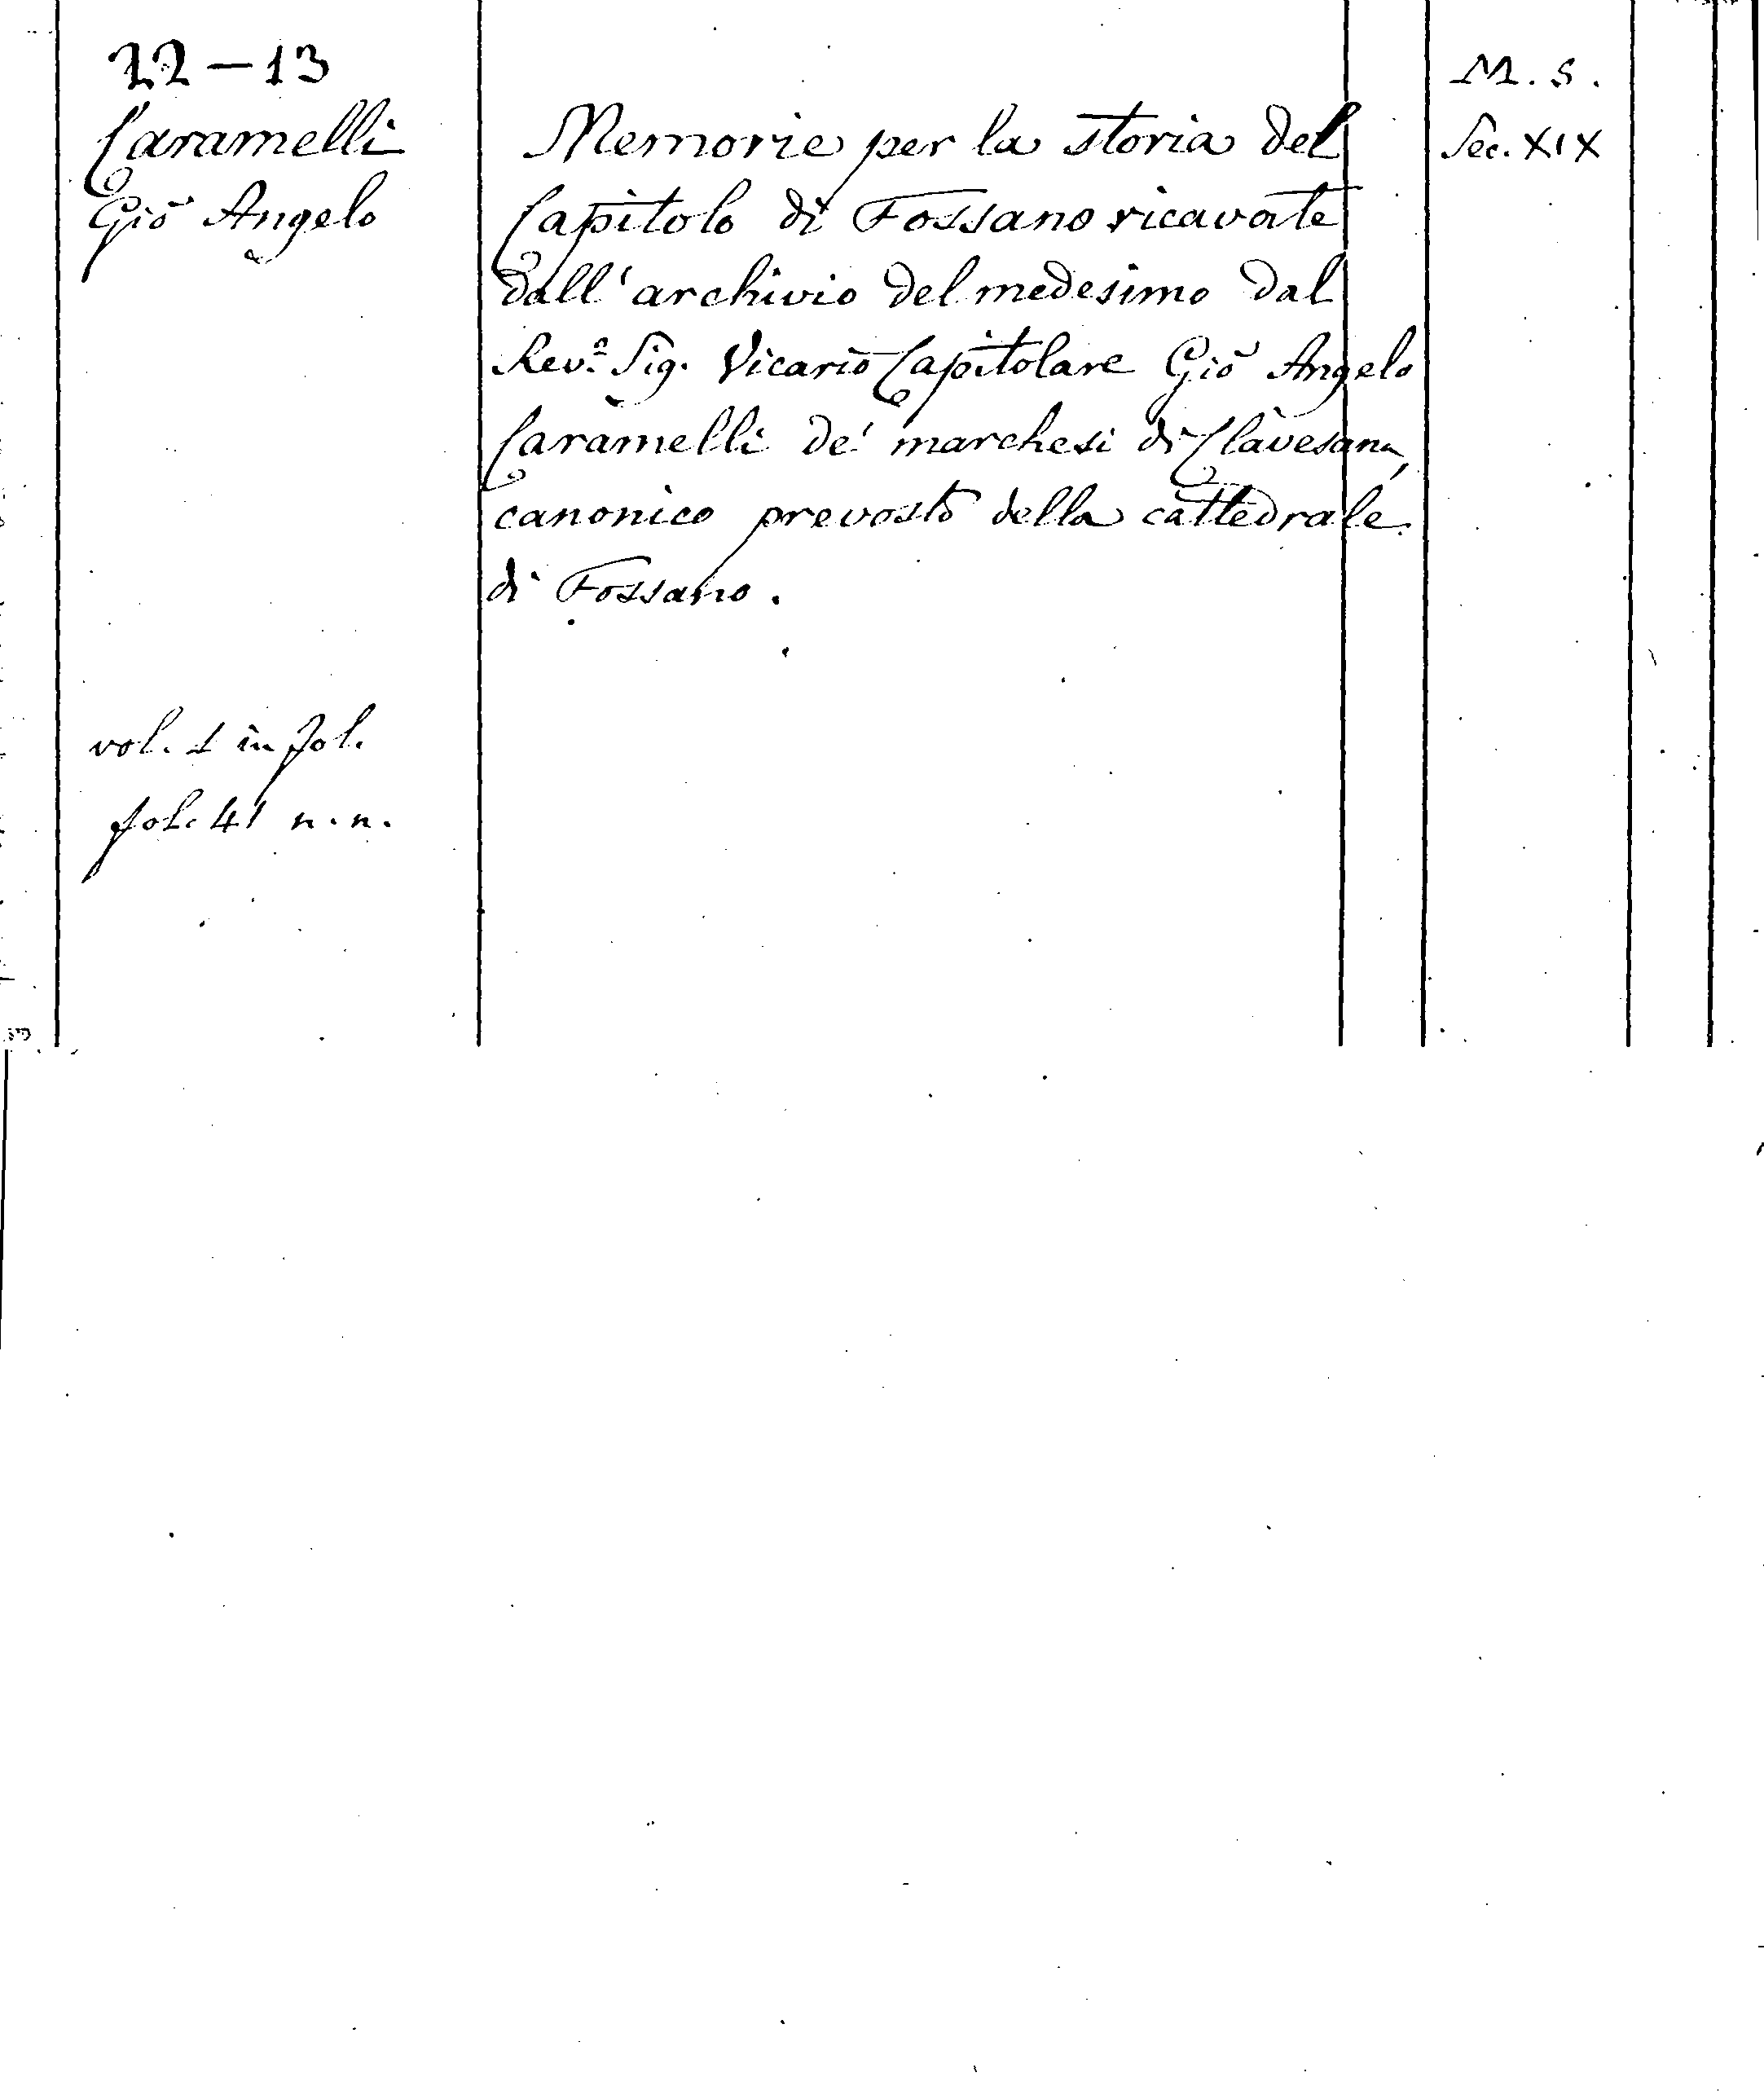 22 – 13
Caramelli
Giò Angelo
vol. 1 in fol.
fol. 41 n. n.
Memorie per la storia del
Capitolo di Fossano ricavate
dall'archivio del medesimo dal
Rev.º Sig. Vicario Capitolare Giò Angelo
Caramelli de' marchesi di Clavesana,
canonico prevosto della cattedrale
di Fossano.
M. S.
Sec. XIX